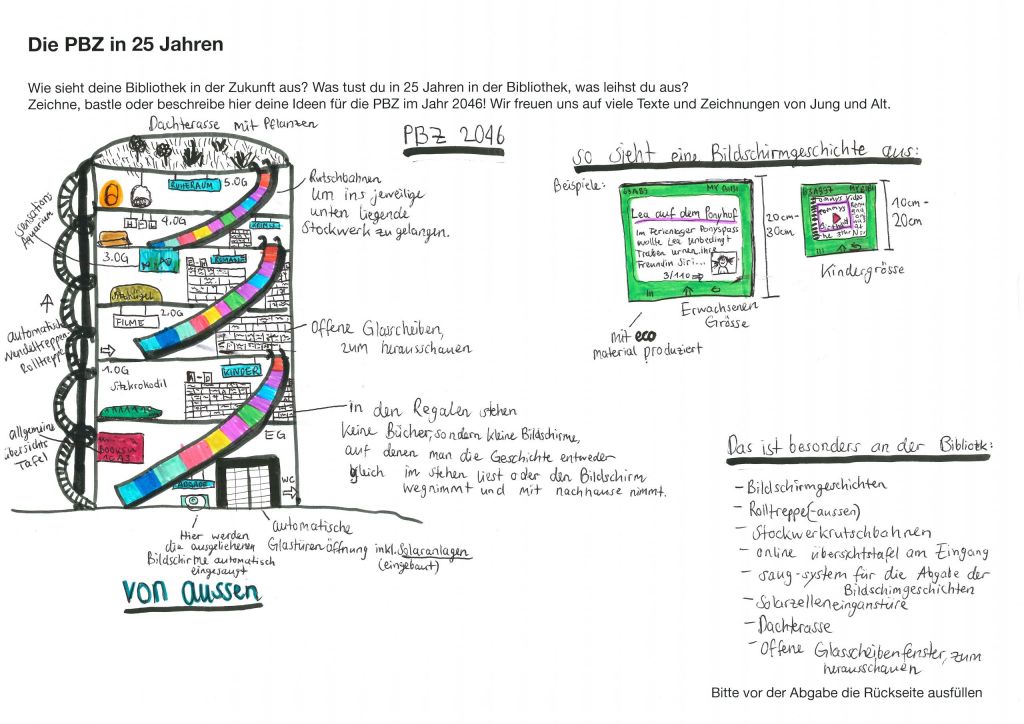 Die PBZ in 25 Jahren
Wie sieht deine Bibliothek in der Zukunft aus? Was tust du in 25 Jahren in der Bibliothek, was leihst du aus?
Zeichne, bastle oder beschreibe hier deine Ideen für die PBZ im Jahr 2046! Wir freuen uns auf viele Texte und Zeichnungen von Jung und Alt.
Dachterasse mit Pflanzen
PBZ 2046
RUHERAUM
5.OG
4.OG
3.OG
2.OG
FILME
1.OG
Sitzkrokodil
KINDER
EG
WC
Rutschbahnen
um ins jeweilige
unten liegende
Stockwerk zu gelangen.
Aquarium
Automatische
Wendeltreppen-
Rolltreppe
Offene Glasscheiben,
zum herausschauen
allgemeine
übersichts
Tafel
in den Regalen stehen
keine Bücher, sondern kleine Bildschirme,
auf denen man die Geschichte entweder
gleich im stehen liest oder den Bildschirm
wegnimmt und mit nachhause nimmt.
Hier werden
die ausgeliehenen
Bildschirme automatisch
eingesaugt
automatische
Glastürenöffnung inkl. Solaranlagen
(eingebaut)
von aussen
so sieht eine Bildschirmgeschichte aus:
Beispiele:
Lea auf dem Ponyhof
im Ferienlager Ponyspass
wollte Lea unbedingt
Traben
Freundin Siri...
3/110
20cm-
30cm
Erwachsenen
Grösse
mit eco
material produziert
10cm-
20cm
Kindergrösse
Das ist besonders an der Bibliotk:
- Bildschirmgeschichten
- Rolltreppe(-aussen)
- Stockwerkrutschbahnen
- online übersichtstafel am Eingang
- saug-system für die Abgabe der
Bildschimgeschichten
- Solarzelleneinganstüre
- Dachterasse
- Offene Glasscheibenfenster, zum
herausschauen
Bitte vor der Abgabe die Rückseite ausfüllen